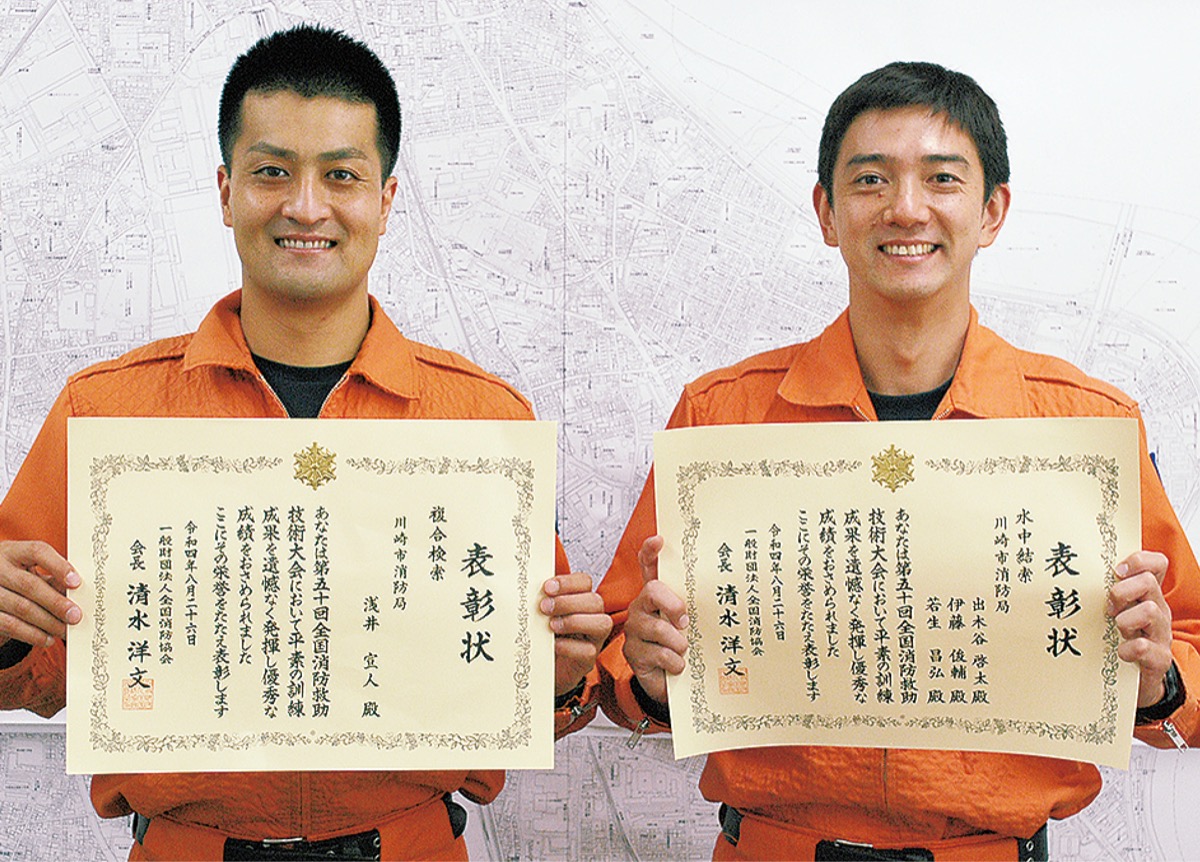 表彰状
複合検索
川崎市消防局
浅井 宣人 殿
あなたは第五十回全国消防救助
技術大会において平素の訓練
成果を遺憾なく発揮し優秀な
成績をおさめられました
ここにその栄誉をたたえ表彰します
令和四年八月二十六日
一般財団法人全国消防協会
会長 清水 洋文
表彰状
水中結索
川崎市消防局
出木谷 啓太 殿
伊藤 俊輔 殿
若生 昌弘 殿
あなたは第五十回全国消防救助
技術大会において平素の訓練
成果を遺憾なく発揮し優秀な
成績をおさめられました
ここにその栄誉をたたえ表彰します
令和四年八月二十六日
一般財団法人全国消防協会
会長 清水 洋文